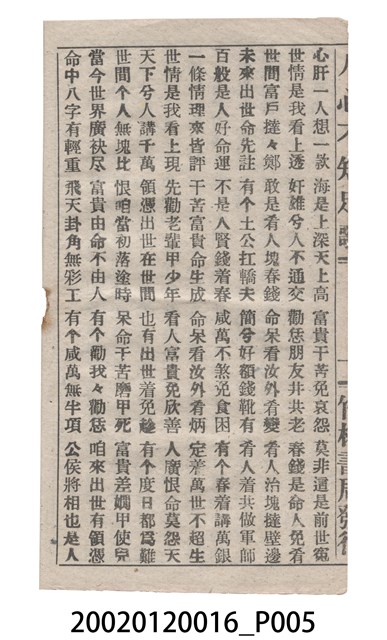 人心不知足歌　一　竹林書局發行
心肝一人想一款　海是上深天上高　富貴干苦免哀怨　莫非這是前世冤
世情是我看上透　奸雄兮人不通交　勸恁朋友井共老　春錢是命人免肴
世間富戶撻々鄭　敢是肴人塊春錢　命呆看汝外肴變　肴人治塊撻壁邊
未來出世命先註　有个土公扛轎夫　简兮好額錢靴有　肴人着共做軍師
百般是人好命運　不是人賢錢着春　咸萬不煞免食困　有个春着講萬銀
一條情理來皆評　干苦富貴命生成　命呆看汝外肴炳　定着萬世不超生
世情是我看上現　先勸老輩甲少年　看人富貴免欣善　人廣恨命莫怨天
天下兮人講千萬　領憑出世在世間　也有出世着免趁　有个度日都為難
世間个人無塊比　恨咱當初落塗時　呆命干苦磨甲死　富貴差嫺甲使兒
當今世界廣袂尽　富貴由命不由人　有个勸我々勸恁　咱來出世有領憑
命中八字有輕重　飛天卦角無彩工　有个咸萬無半項　公侯將相也是人
20020120016_P005